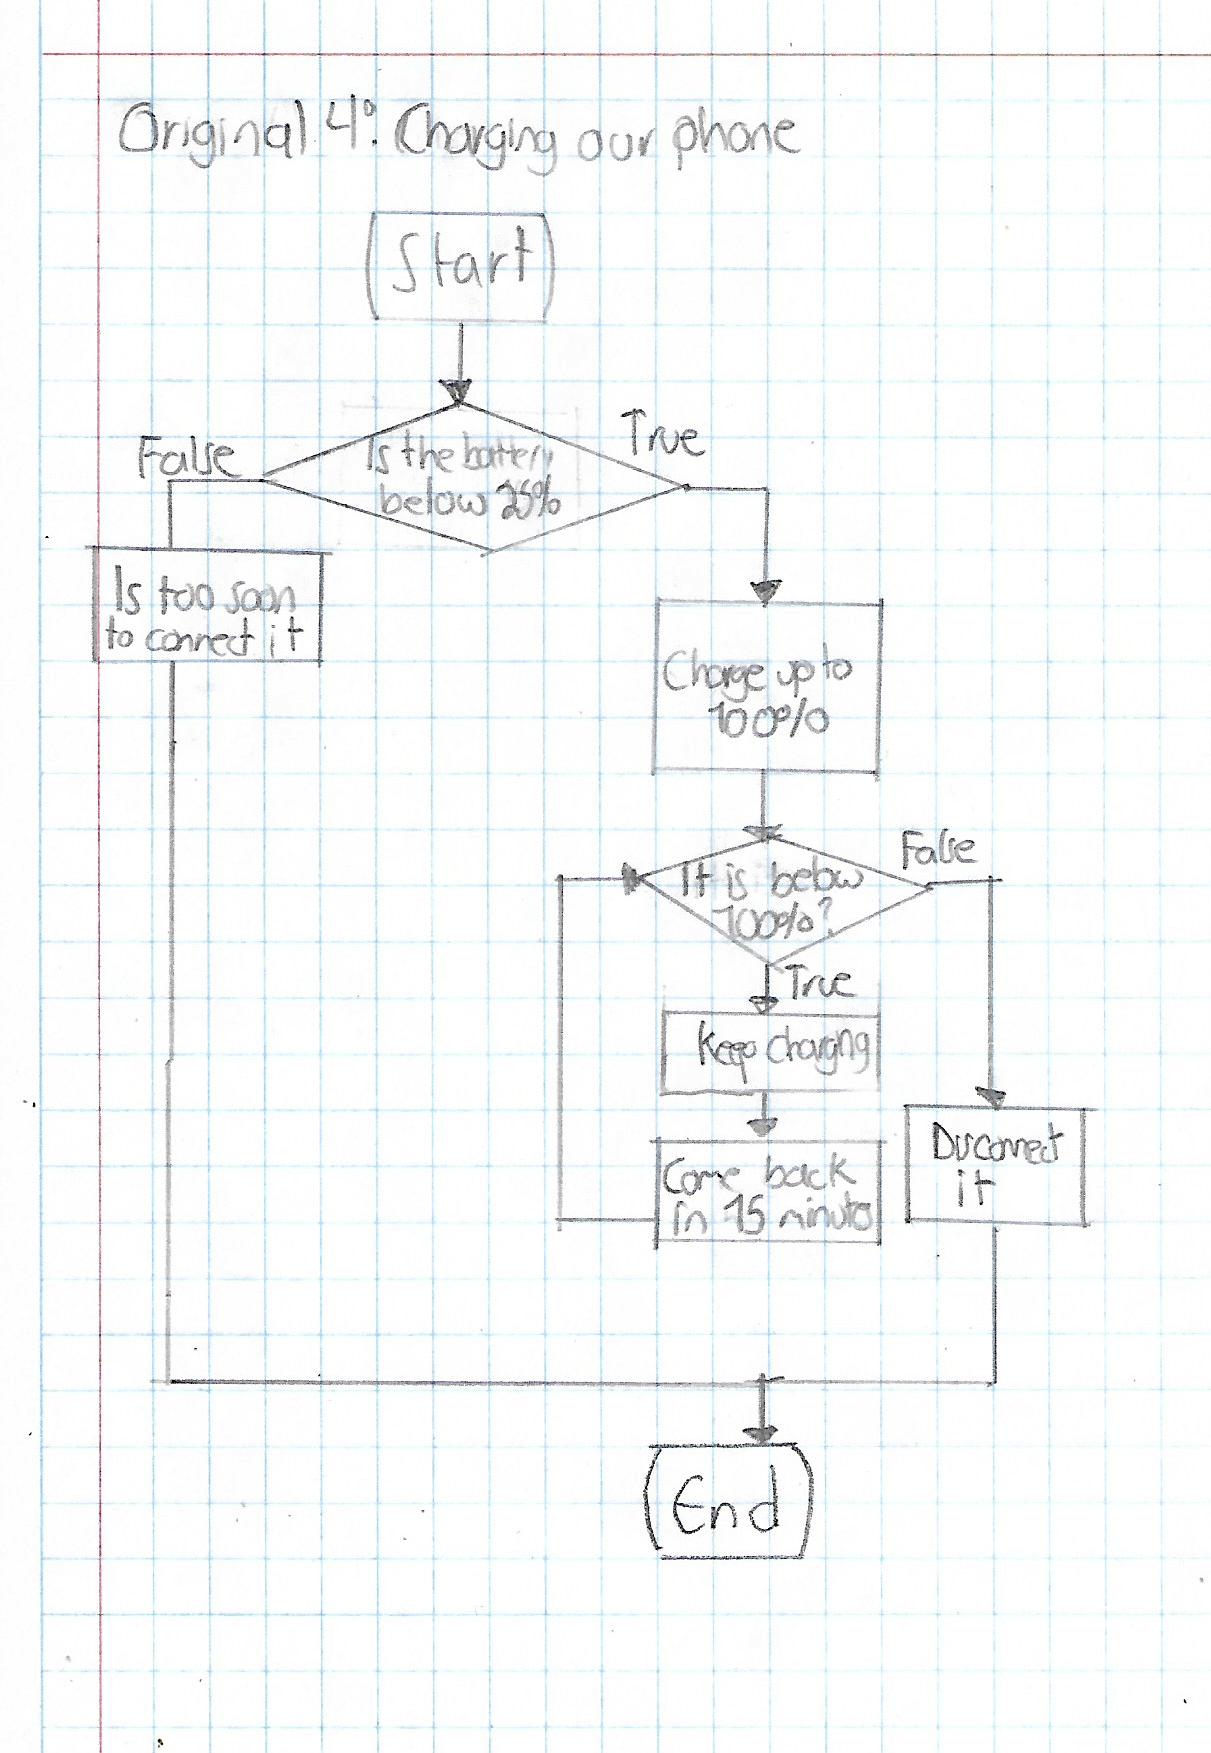 Original 4°: Charging our phone
Start
Is the battery
below 25%
False
True
Is too soon
to connect it
Charge up to
100%
It is below
100%?
False
True
Keep charging
Disconnect
it
Come back
in 15 minutes
End